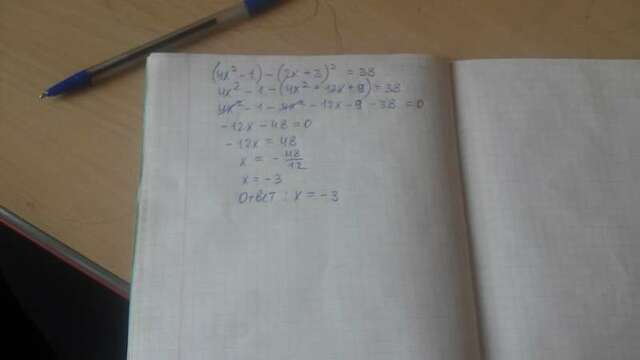 (4x² - 1) - (2x + 3)² = 38
4x² - 1 - (4x² + 12x + 9) = 38
4x² - 1 - 4x² - 12x - 9 - 38 = 0
-12x - 48 = 0
-12x = 48
x = - 48/12
x = -3
Ответ: x = -3